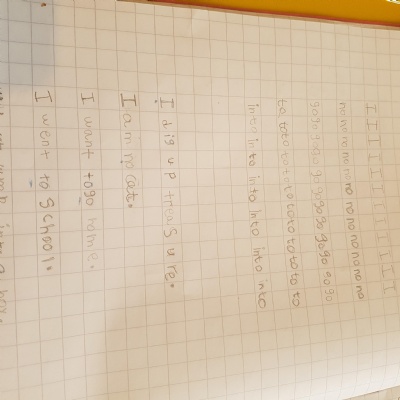 I I I I I I I I I I I I
no no no no no no no no no no no no
go go go go go go go go go go go
to to to to to to to to to to to to
into into into into into into
I dig up treasure.
I am cat.
I want togo
I went to school.
into a box.